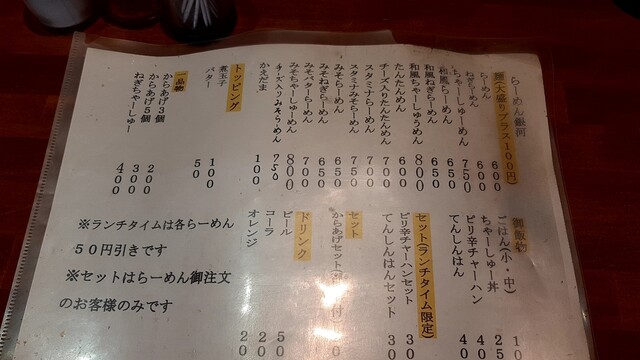 らーめん銀河
麺(大盛りプラス100円)
らーめん 600
ねぎらーめん 600
ちゃーしゅーめん 750
和風らーめん 650
和風ねぎらーめん 650
和風ちゃーしゅうめん 800
たんたんめん 600
チーズ入りたんたんめん 700
スタミナらーめん 700
スタミナみそらーめん 750
みそらーめん 650
みそねぎらーめん 650
みそバターらーめん 700
みそちゃーしゅーめん 800
チーズ入りみそらーめん 750
かえだま 100
トッピング
煮玉子 100
バター 50
一品物
からあげ3個 200
からあげ5個 300
ねぎちゃーしゅー 400
御飯物
ごはん(小・中) 10
ちゃーしゅー丼 25
ピリ辛チャーハン 40
てんしんはん 40
セット(ランチタイム限定)
ピリ辛チャーハンセット 30
てんしんはんセット 30
セット
からあげセット
ドリンク
ビール 50
コーラ 20
オレンジ 20
※ランチタイムは各らーめん
50円引きです
※セットはらーめん御注文
のお客様のみです